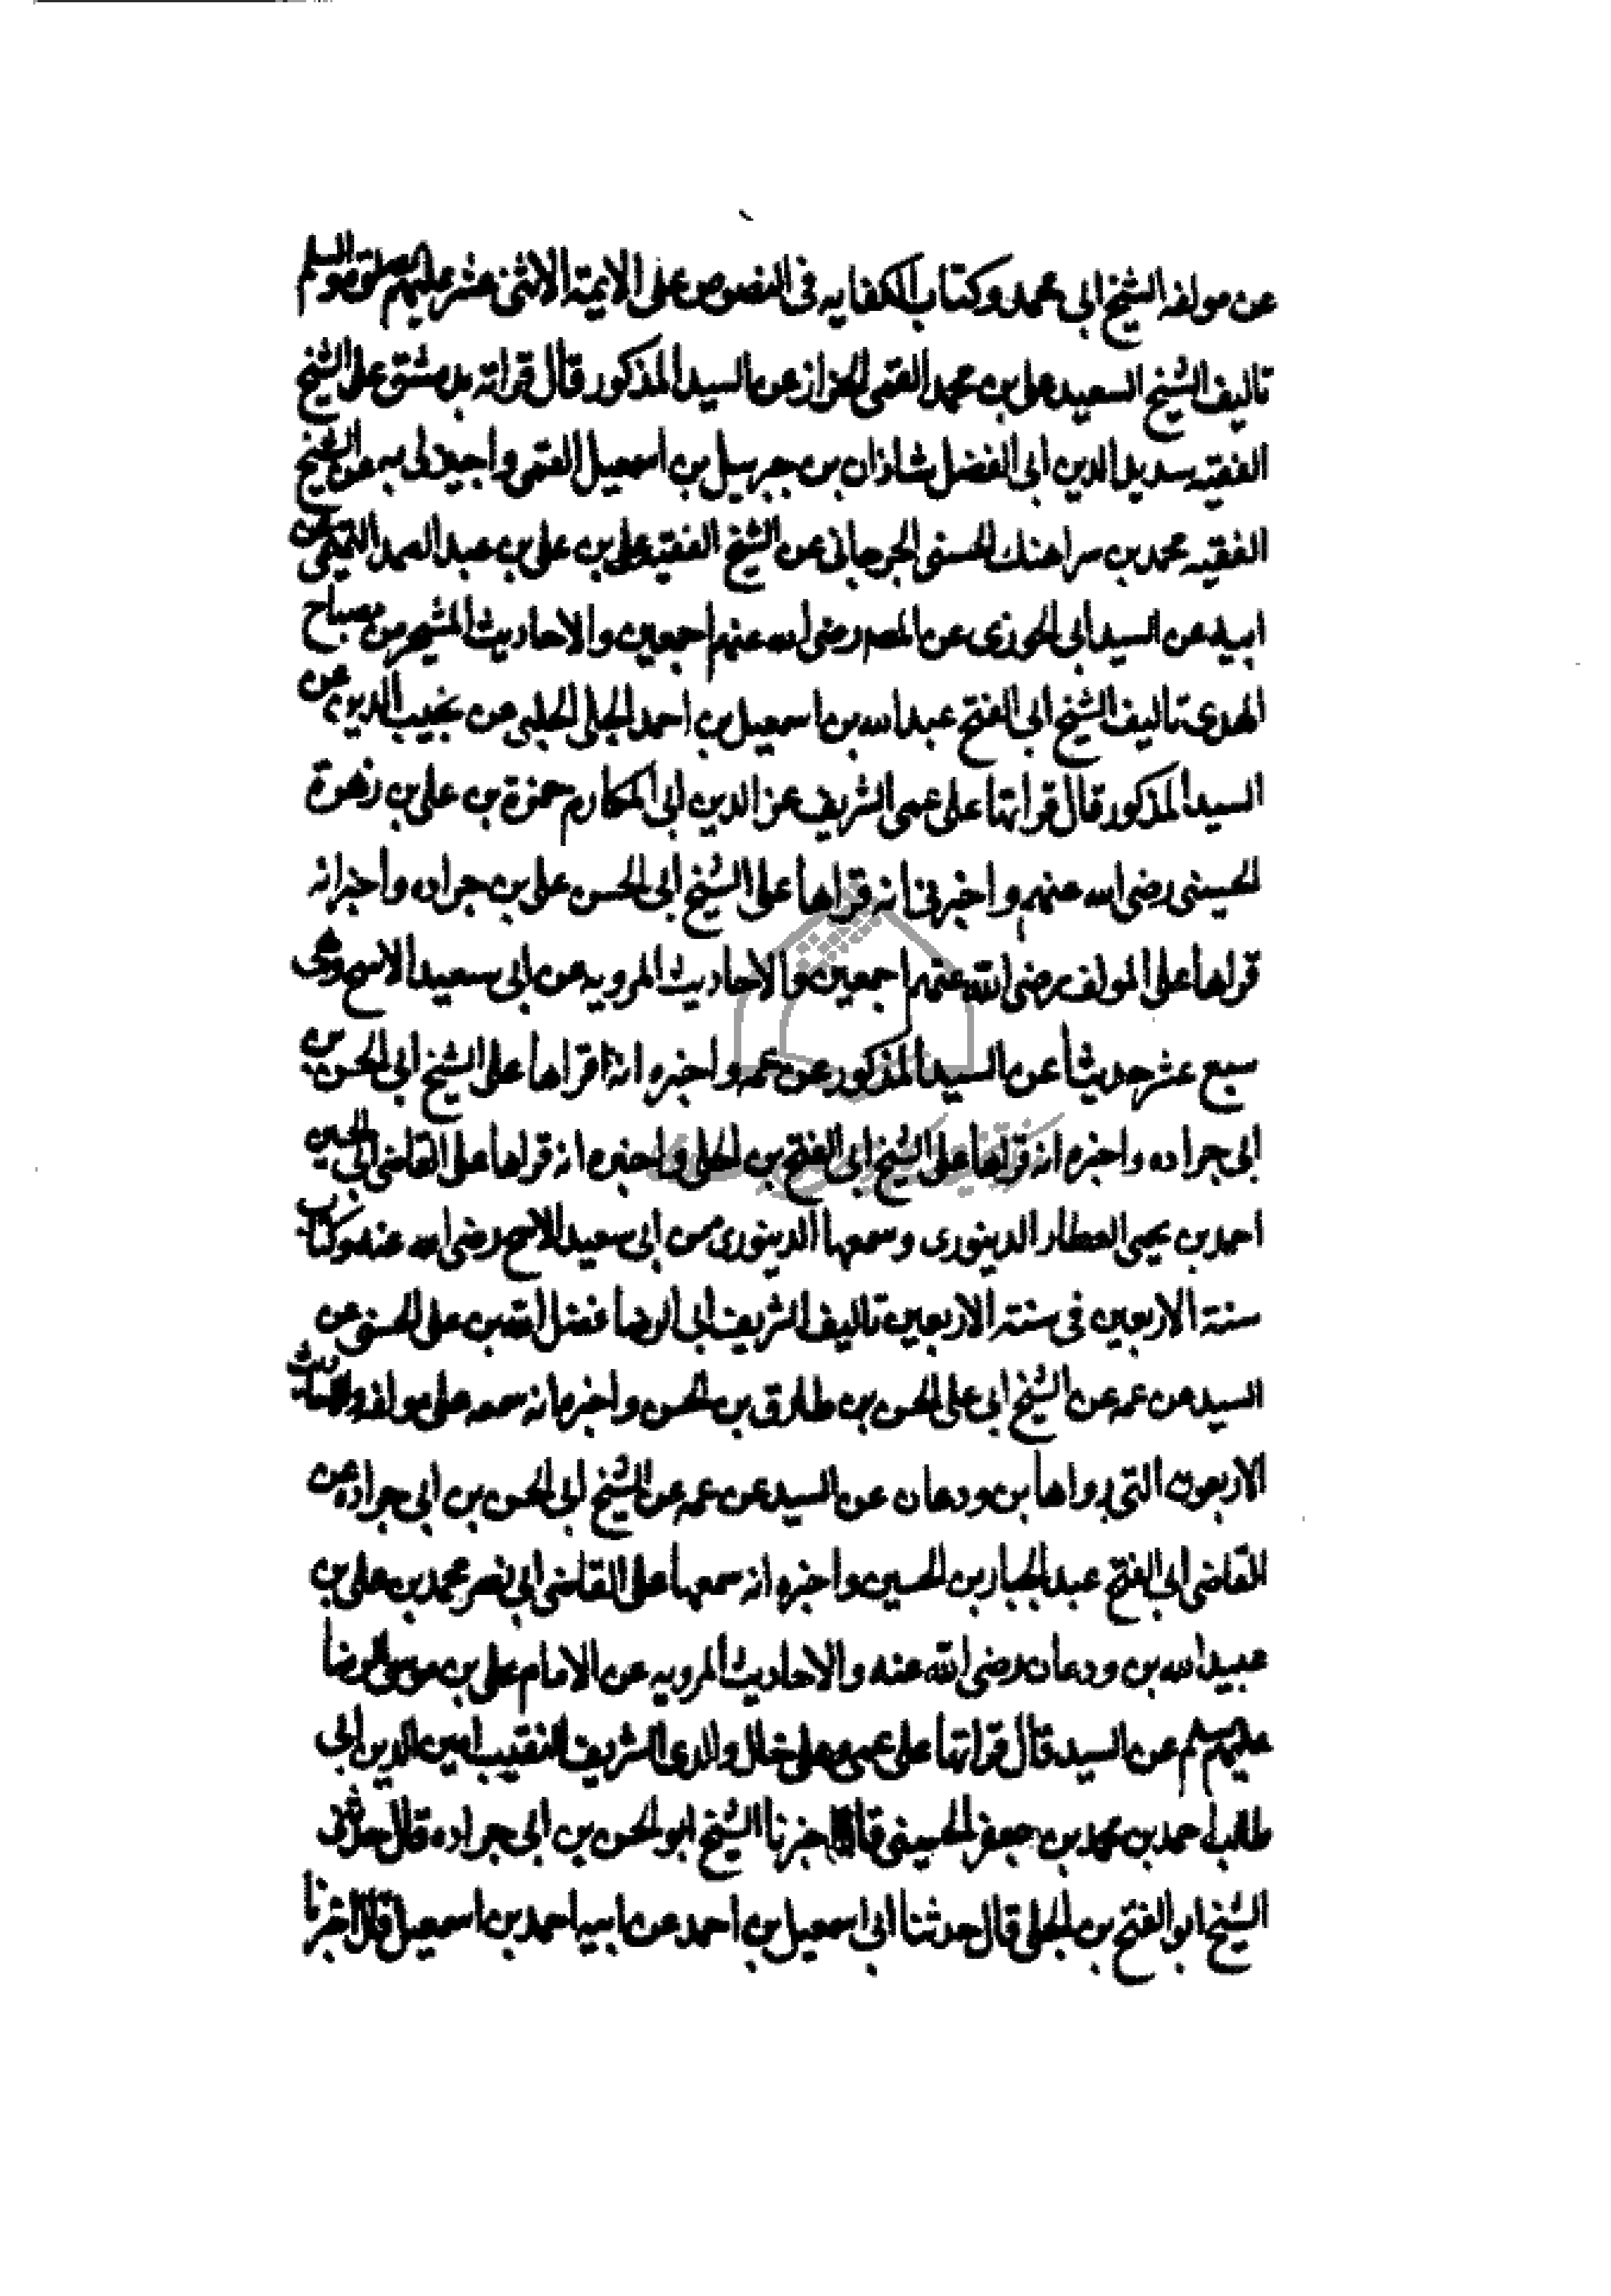 عن مولفه الشيخ ابى محمد وكتاب الكفايه فى النصوص على الايمة الاثنى عشر عليهم
تاليف الشيخ السعيد على بن محمد القمى الخزاز عن السيد المذكور قال قراته بدمشق على الشيخ
الفقيه سديد الدين ابى الفضل شاذان بن جبرييل بن اسمعيل القمى واجيز لى به عن الشيخ
الفقيه محمد بن سراهنك الحسنى الجرجانى عن الشيخ الفقيه على بن على بن عبد الصمد التميمى عن
ابيه عن السيد ابى الجوزى عن المصم رضى الله عنهم اجمعين والاحاديث من مصباح
الهدى تاليف الشيخ ابى الفتح عبد الله بن اسمعيل بن احمد الجلى الحلبى عن نجيب الدين عن
السيد المذكور قال قراتها على عمى الشريف عز الدين ابى المكارم حمزة بن على بن زهرة
الحسينى رضى الله عنهم واخبرنى انه قراها على الشيخ ابى الحسن على بن جراده واخبر انه
قراها على المولف رضى الله عنهم اجمعين والاحاديث المرويه عن ابى سعيد الاسج وهى
سبع عشر حديثا عن السيد المذكور عن عمه واخبره انه قراها على الشيخ ابى الحسن بن
ابى جراده واخبره انه قراها على الشيخ ابى الفتح بن الجلى واخبره انه قراها على القاضى ابى الحسين
احمد بن يحيى العطار الدينورى وسمعها الدينورى من ابى سعيد الاسج رضى الله عنه وكتاب
سنة الاربعين فى سنة الاربعين تاليف الشريف ابى الرضا فضل الله بن على الحسنى عن
السيد عن عمه عن الشيخ ابى على الحسن بن طارق بن الحسن واخبره انه سمعه على مولفه والاحاديث
الاربعون التى رواها بن ودعان عن السيد عن عمه عن الشيخ ابى الحسن بن ابى جراده عن
القاضى ابى الفتح عبد الجبار بن الحسين واخبره انه سمعها على القاضى ابى نصر محمد بن على بن
عبيد الله بن ودعان رضى الله عنه والاحاديث المرويه عن الامام على بن موسى الرضا
عليهم السلم عن السيد قال قراتها على عمى وعلى خال والدى الشريف النقيب امين الدين ابى
طالب احمد بن محمد بن جعفر الحسينى قالا اخبرنا الشيخ ابو الحسن بن ابى جراده قال حدثنى
الشيخ ابو الفتح بن الجلى قال حدثنا ابى اسمعيل بن احمد عن ابيه احمد بن اسمعيل قال اخبرنا